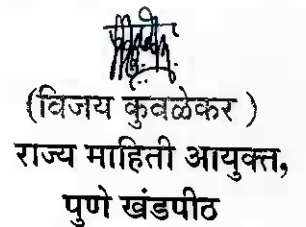 (विजय कुवळेकर )
राज्य माहिती आयुक्त,
पुणे खंडपीठ